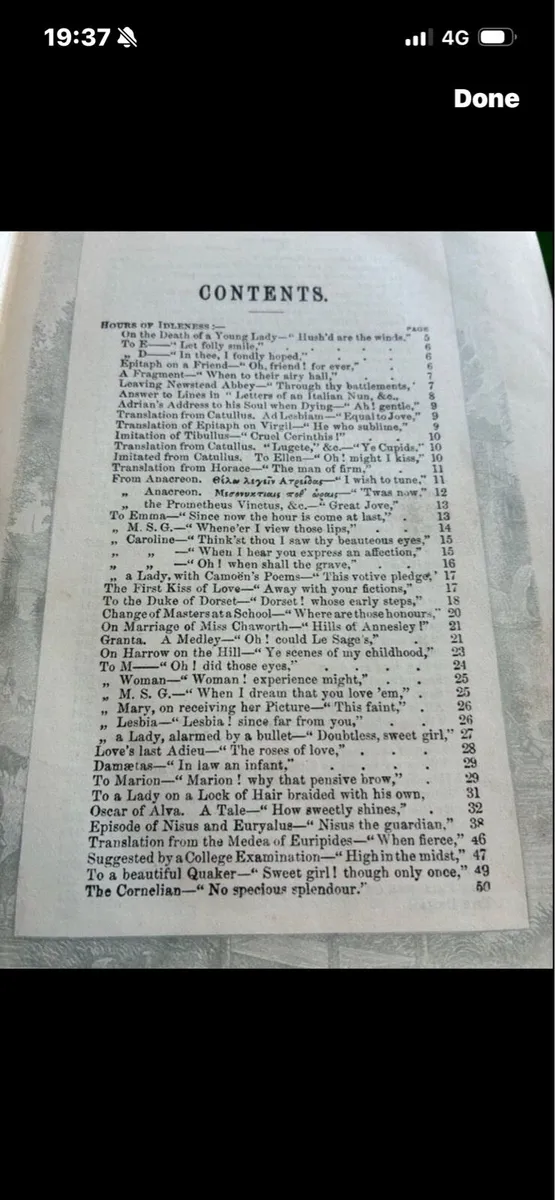 19:37
4G
Done
CONTENTS.
HOURS OF IDLENESS:—
PAGE
On the Death of a Young Lady—“ Hush'd are the winds.” 5
To E——“ Let folly smile,” . . . . . 6
„ D——“ In thee, I fondly hoped,” . . . 6
Epitaph on a Friend—“ Oh, friend! for ever,” . . 6
A Fragment—“ When to their airy hall,” . . 7
Leaving Newstead Abbey—“ Through thy battlements,’ 7
Answer to Lines in “ Letters of an Italian Nun, &c., 8
Adrian's Address to his Soul when Dying—“ Ah! gentle,” 9
Translation from Catullus. Ad Lesbiam—“ Equal to Jove,” 9
Translation of Epitaph on Virgil—“ He who sublime,” 9
Imitation of Tibullus—“ Cruel Cerinthis!” . . 10
Translation from Catullus. “ Lugete,” &c.—“ Ye Cupids,” 10
Imitated from Catullus. To Ellen—“ Oh! might I kiss,” 10
Translation from Horace—“ The man of firm,” . 11
From Anacreon. Θέλω λεγεῖν Ατρείδας—“ I wish to tune,” 11
„ Anacreon. Μεσονυκτίαις ποθ’ ὥραις—“ 'Twas now,” 12
„ the Prometheus Vinctus, &c.—“ Great Jove,” 13
To Emma—“ Since now the hour is come at last,” . 13
„ M. S. G.—“ Whene'er I view those lips,” . . 14
„ Caroline—“ Think'st thou I saw thy beauteous eyes,” 15
„ „ —“ When I hear you express an affection,” 15
„ „ —“ Oh! when shall the grave,” . . 16
„ a Lady, with Camoën's Poems—“ This votive pledge,’ 17
The First Kiss of Love—“ Away with your fictions,” 17
To the Duke of Dorset—“ Dorset! whose early steps,” 18
Change of Masters at a School—“ Where are those honours,” 20
On Marriage of Miss Chaworth—“ Hills of Annesley!” 21
Granta. A Medley—“ Oh! could Le Sage's,” . 21
On Harrow on the Hill—“ Ye scenes of my childhood,” 23
To M——“ Oh! did those eyes,” . . . . 24
„ Woman—“ Woman! experience might,” . . 25
„ M. S. G.—“ When I dream that you love 'em,” . 25
„ Mary, on receiving her Picture—“ This faint,” . 26
„ Lesbia—“ Lesbia! since far from you,” . . 26
„ a Lady, alarmed by a bullet—“ Doubtless, sweet girl,” 27
Love's last Adieu—“ The roses of love,” . . . 28
Damætas—“ In law an infant,” . . . . 29
To Marion—“ Marion! why that pensive brow,” . 29
To a Lady on a Lock of Hair braided with his own, 31
Oscar of Alva. A Tale—“ How sweetly shines,” . 32
Episode of Nisus and Euryalus—“ Nisus the guardian,” 38
Translation from the Medea of Euripides—“ When fierce,” 46
Suggested by a College Examination—“ High in the midst,” 47
To a beautiful Quaker—“ Sweet girl! though only once,” 49
The Cornelian—“ No specious splendour.” 50